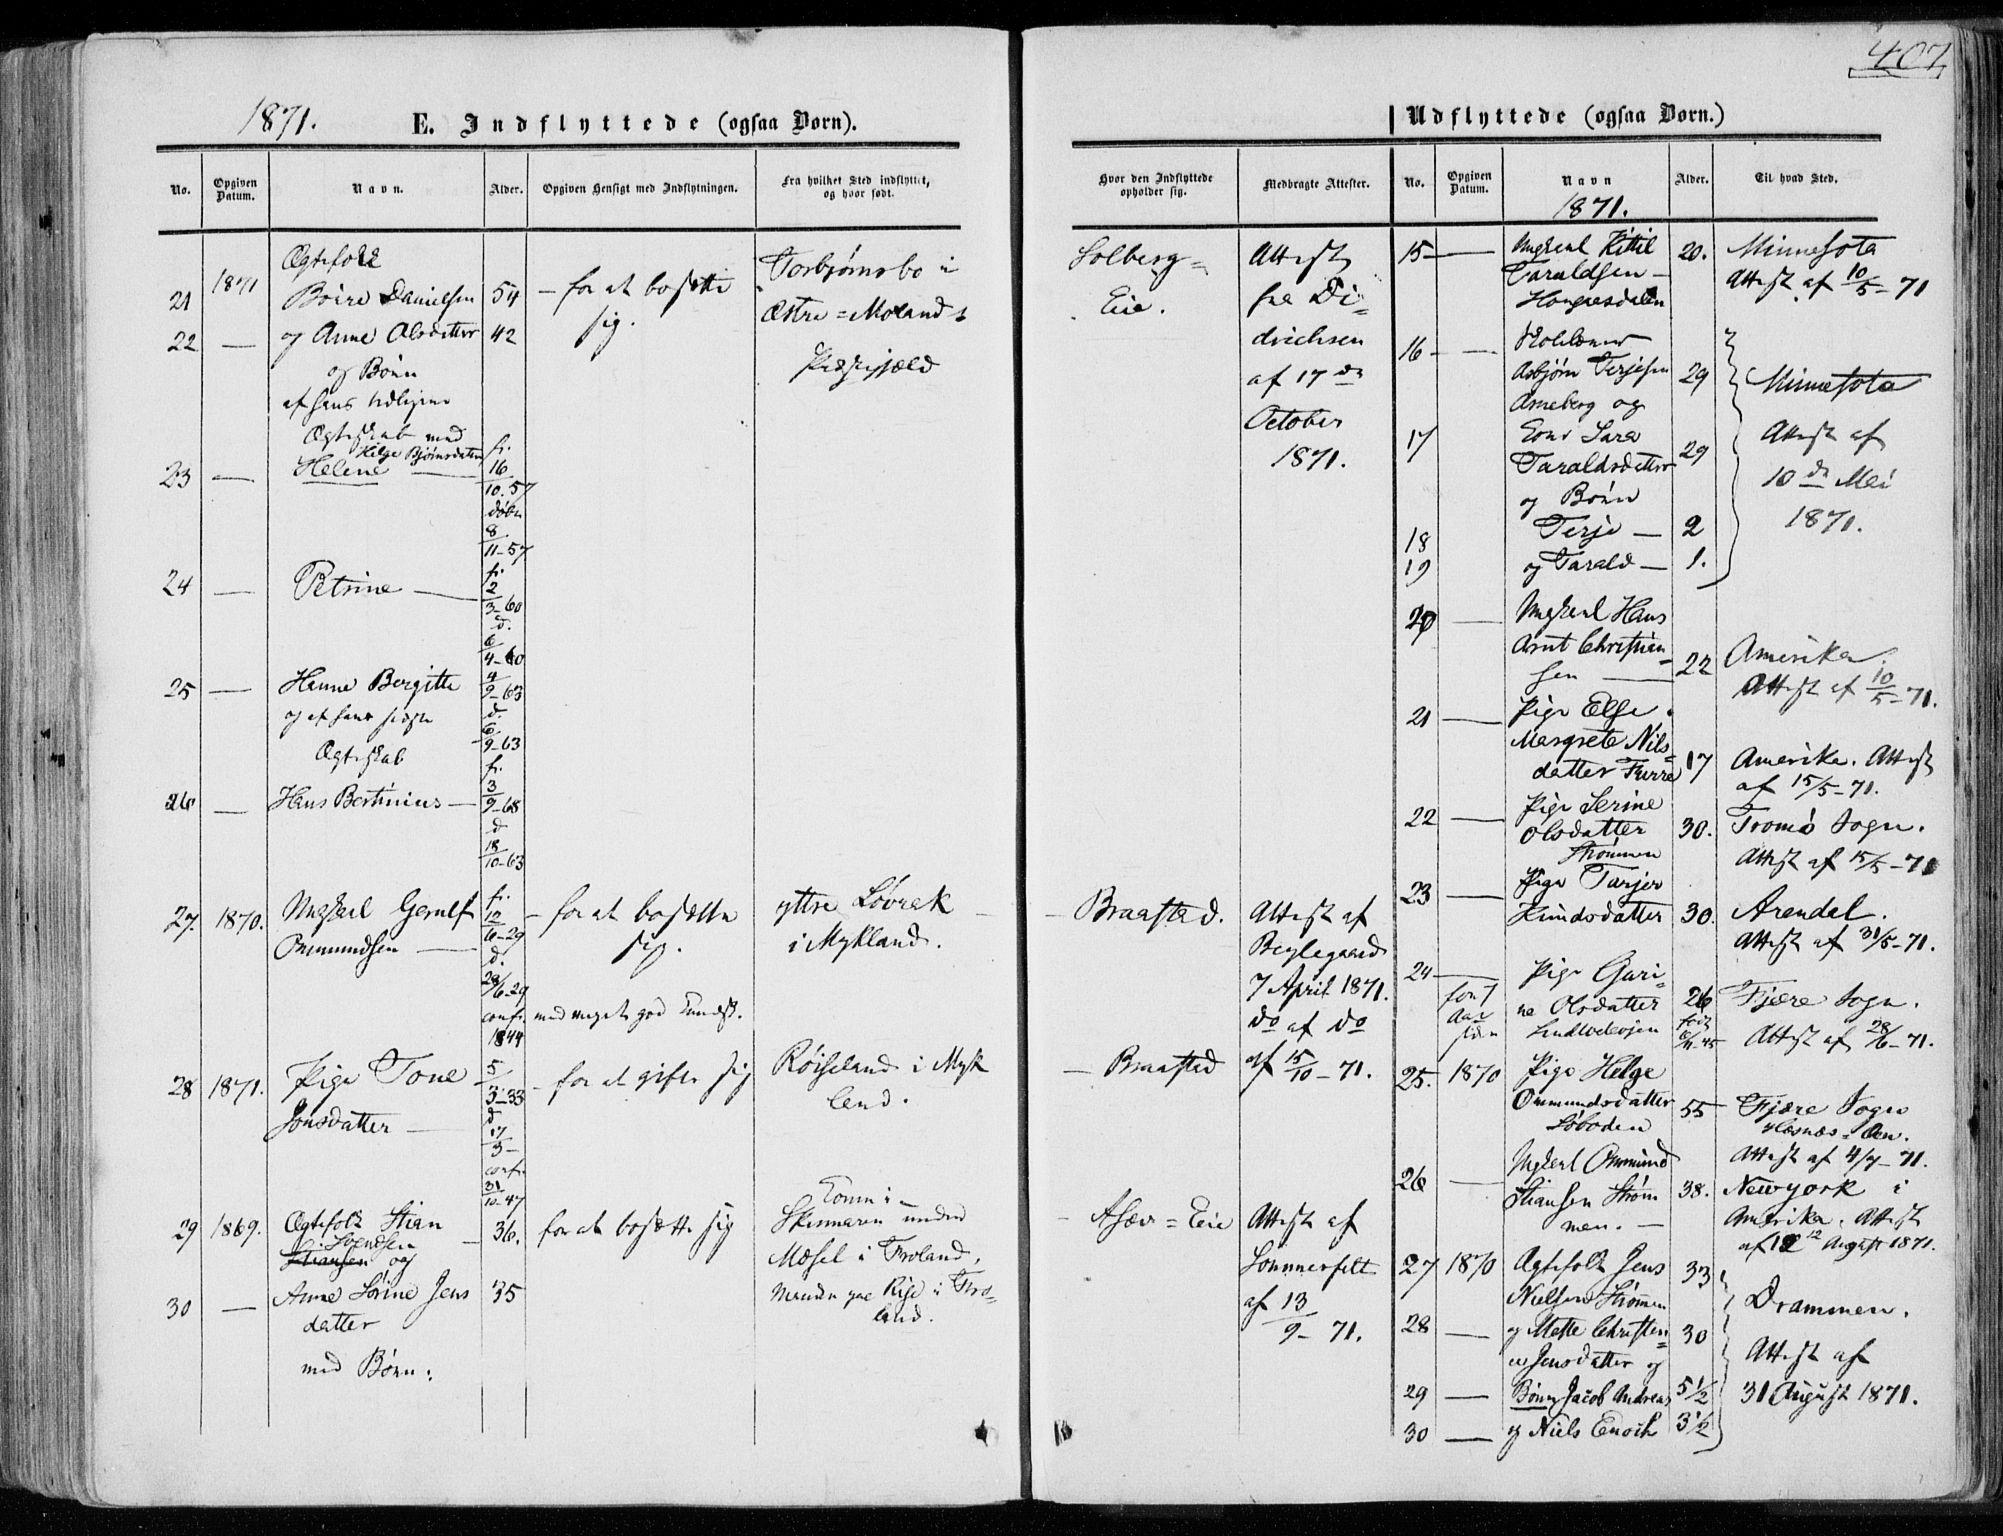 407
1871.
E. Indflyttede (ogsaa Børn).
No.
Opgiven Datum.
Navn.
Alder.
Opgiven Hensigt med Indflytningen.
Fra hvilket Sted indflyttet, og hvor født.
Hvor den Indflyttede opholder sig.
Medbragte Attester.
21
1871
Ægtefolk
Boïre Danielsen
54
– for at bosætte
sig.
Torbjørnsbo i
Østre=Molands
Præstegjæld
Solberg=
Eie.
Attest
fra Di=
drichsen
af 17 de
October
1871.
22 —
og Anne Olsdatter
42
og Børn
af hans tidligere
Ægteskab med
Helge Bjørnsdatter
23 —
Helene —
f.
16
10.57
døbt
8
11–57
24 —
Petrine —
f.
2
3–60
d.
6
4–60
25 —
Hanne Bergitte
4
9–63
d.
6
9–63
og af hans sidste
Ægteskab
26 —
Hans Bertinius —
f.
3
9–68
d
18
10–63
27. 1870.
Ungkarl Gerulf
Ommundsen —
f.
12
6–29
d.
28/6–29
conf.
1844
– for at bosætte
sig.
med meget god Kundsk.
yttre Løvrak
i Mykland.
– Braastad.
Attest af
Beylegaard
7 April 1871.
do af do
28 1871.
Pige Tone
Jonsdatter —
5
3–33
d
17
3–
conf.
31
10–47
– for at gifte sig
Røiseland i Myk
land.
– Braastad
af 15/10–71.
29 1869.
Ægtefolk Stian
Svendsen
Stiansen og
—
36.
for at bosætte sig
Konen i –
Skismaren under
Mæsel i Froland,
Manden paa Rise i Fro=
land.
– Asæv=Eie
Attest af
Sommerfelt
af 13
9–71.
30 —
Anne Sørine Jens
datter
35
med Børn:
Udflyttede (ogsaa Børn.)
No.
Opgiven Datum.
Navn
Alder.
Til hvad Sted.
1871.
15 —
Ungkarl Kittil
Taraldsen –
20.
Minnesota
Attest af 10/5–71
16 —
Asbjørn Terjesen
29
Arneberg og
Minnesota
Attest af
10 de Mai
1871.
17
Kone Sara
Taraldsdatter
29
og Børn
18
Terje —
2
19
og Tarald —
1.
20 —
Ungkarl Hans
Arnt Christian
sen —
22
Amerika.
Attest af 10/5–71.
21 —
Pige Else
Margrete Nils=
datter Furre
17
Amerika. Attest
af 15/5–71.
22 —
Pige Serine
Olsdatter
Strømmen
30.
Tromø Sogn.
Attest af 15/5–71
23 —
Pige Tarjer
Knudsdatter
30.
Arendal.
Attest af 31/5–71.
24 —
for 7
Aar
siden
Pige Guri=
ne Olsdatter
26
født
Fjære Sogn.
Attest af 28/6–71.
25. 1870
Pige Helge
Ommundsdatter
Løboden
55
Fjære Sogn
Hæsnæs=Øen.
Attest af 4/7–71.
26 —
Ungkarl Ommund
Stiansen Strøm
men. –
38.
Newyork i
Amerika. Attest
af 12 August 1871.
27 1870
Ægtefolk Jens
Nielsen Strømmen
33
Drammen.
Attest af
31 August 1871.
28 —
og Mette Christen=
Jensdatter og
30
29 —
Børn Jacob Andreas
5½
30 —
og Niels Enock
3½